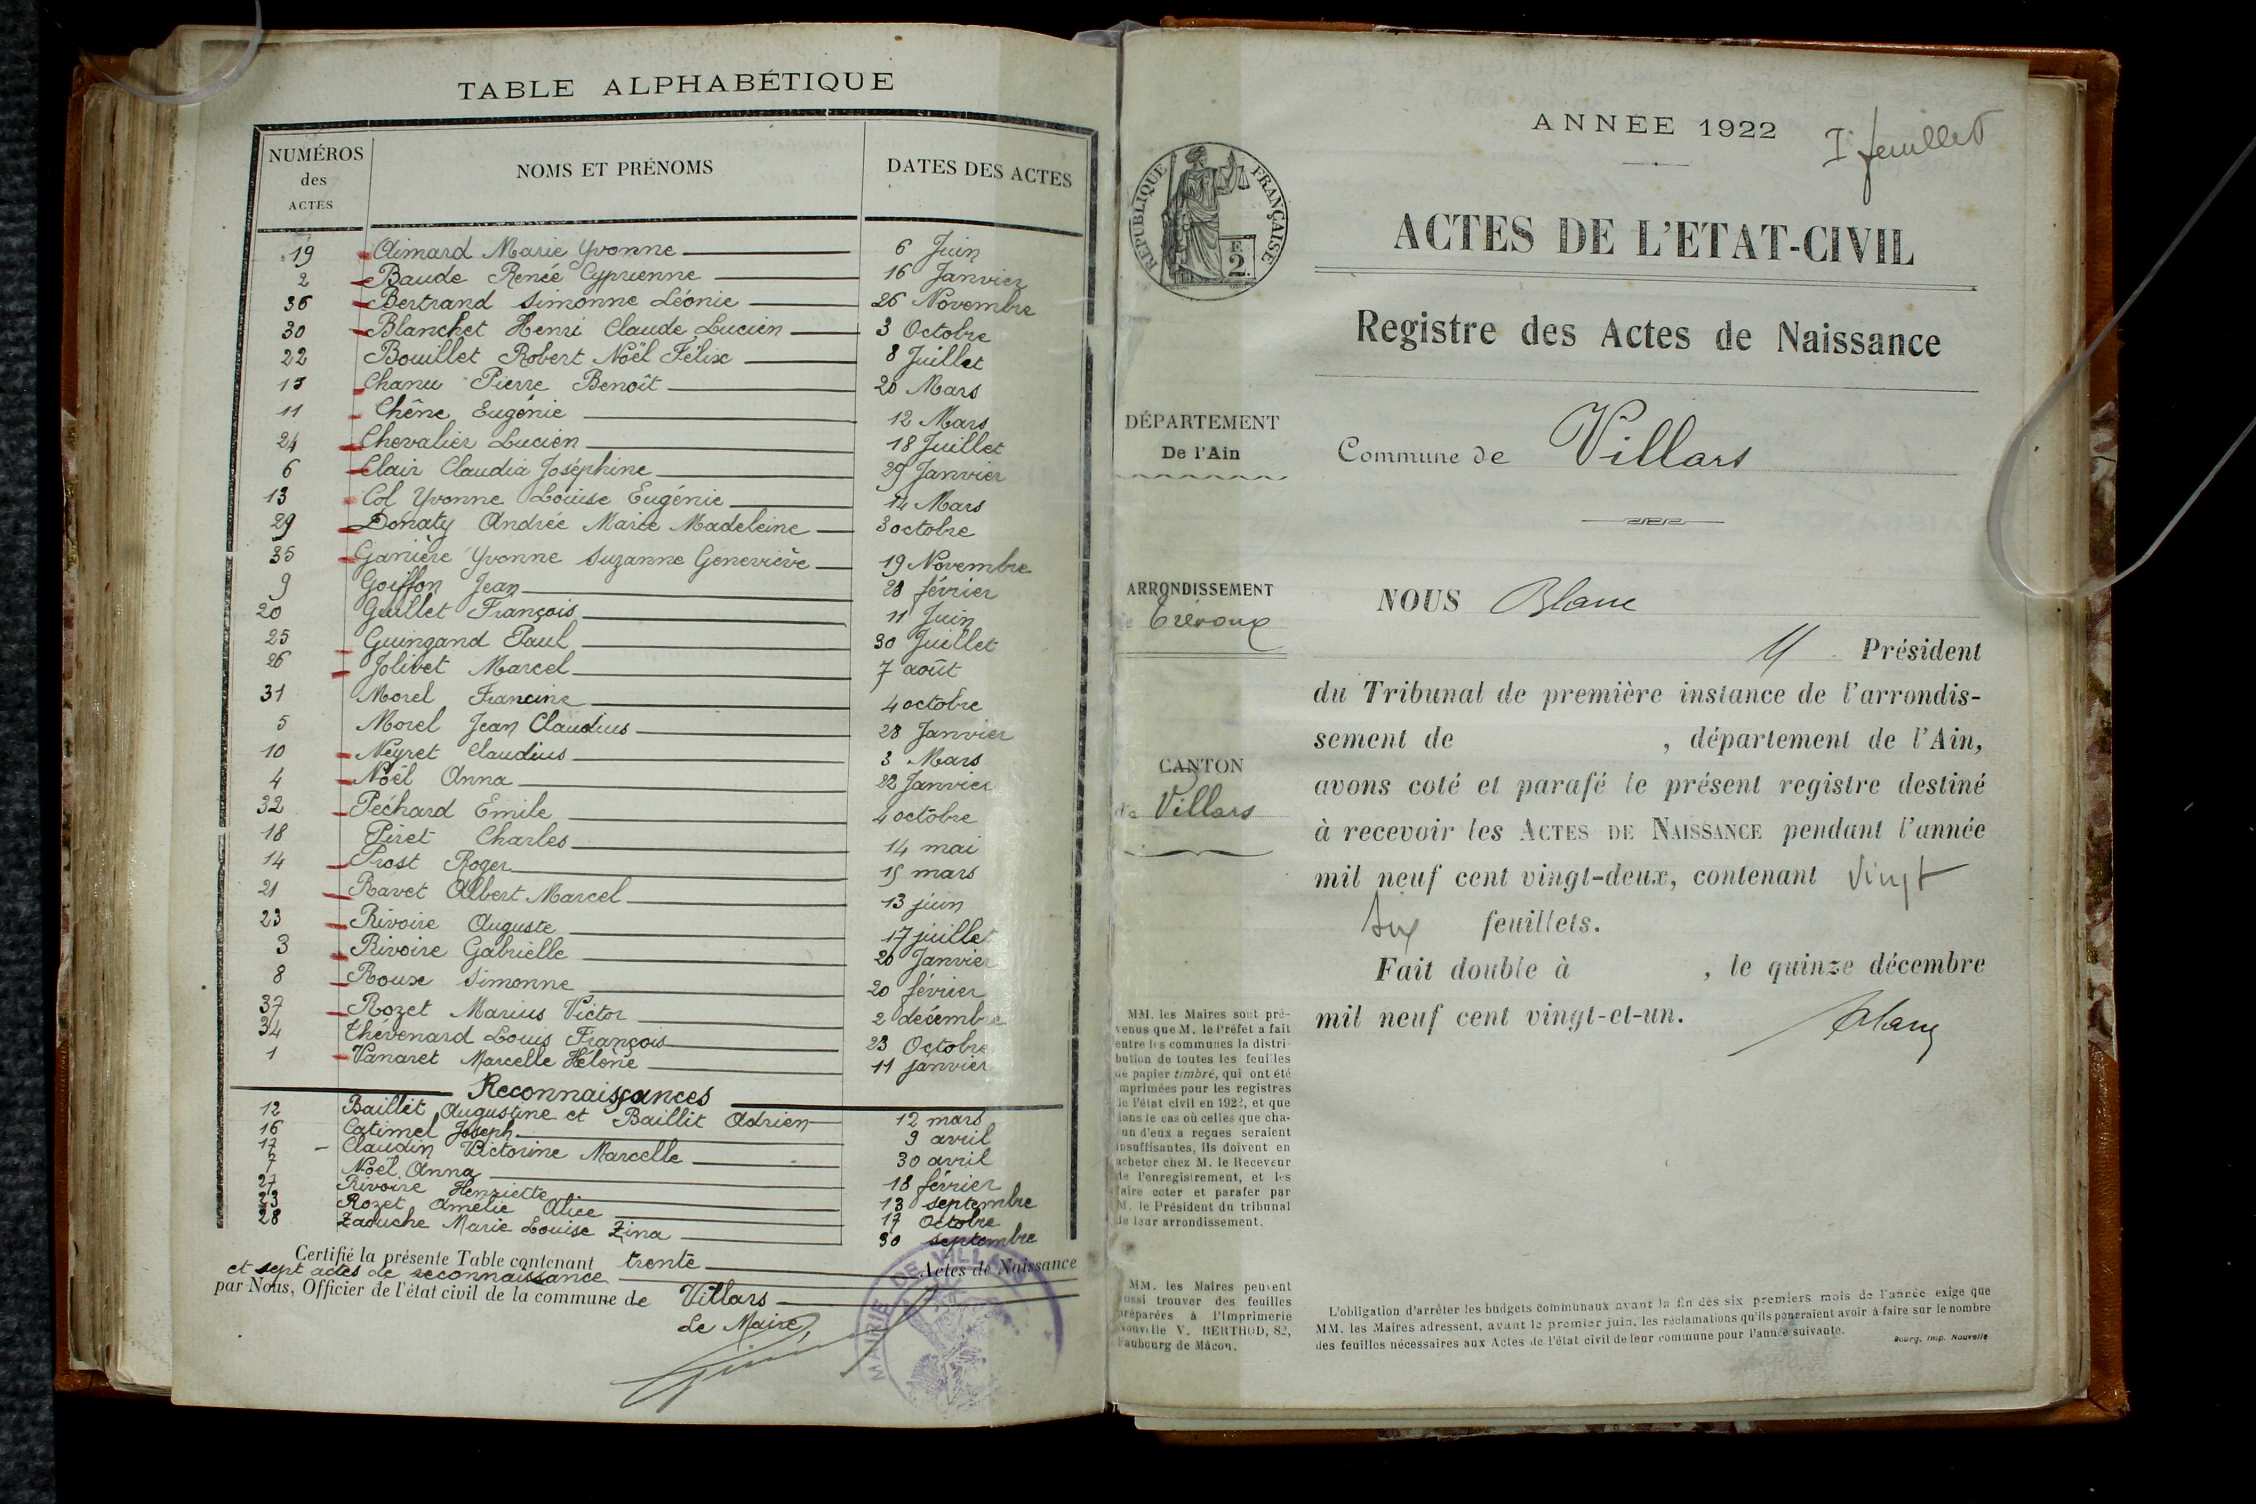 TABLE ALPHABÉTIQUE
NUMÉROS des ACTES NOMS ET PRÉNOMS DATES DES ACTES
19 Aimard Marie Yvonne 6 Juin
2 Baude Renée Cyprienne 16 Janvier
36 Bertrand Simonne Léonie 26 Novembre
30 Blanchet Henri Claude Lucien 3 Octobre
22 Bouillet Robert Noël Félix 8 Juillet
15 Chanu Pierre Benoît 20 Mars
11 Chêne Eugénie 12 Mars
24 Chevalier Lucien 18 Juillet
6 Clair Claudia Joséphine 29 Janvier
13 Col Yvonne Louise Eugénie 14 Mars
29 Donaty Andrée Marie Madeleine 3 octobre
35 Ganière Yvonne Suzanne Geneviève 19 Novembre
9 Goiffon Jean 28 février
20 Guillet François 11 Juin
25 Guingand Paul 30 Juillet
26 Jolivet Marcel 7 août
31 Morel Francine 4 octobre
5 Morel Jean Claudius 28 Janvier
10 Neyret Claudius 3 Mars
4 Noël Anna 22 Janvier
32 Péchard Emile 4 octobre
18 Piret Charles 14 mai
14 Prost Roger 15 mars
21 Ravet Albert Marcel 13 juin
23 Rivoire Auguste 17 juillet
3 Rivoire Gabrielle 20 Janvier
8 Roux Simonne 20 février
37 Rozet Marius Victor 2 décembre
34 Thévenard Louis François 23 Octobre
1 Vanaret Marcelle Hélène 11 janvier
Reconnaissances
12 Baillit Augustine et Baillit Adrien 12 mars
16 Catimel Joseph 9 avril
17 Claudin Victorine Marcelle 30 avril
7 Noël Anna 18 février
27 Rivoire Henriette 13 septembre
Rozet Amélie Alice 17 Octobre
28 Zaouche Marie Louise Zina 30 septembre
Certifié la présente Table contenant trente Actes de Naissance
et sept actes de reconnaissance
par Nous, Officier de l'état civil de la commune de Villars
Le Maire,
MAIRIE DE VILLARS
ANNÉE 1922
Iᵉʳ feuillet
RÉPUBLIQUE FRANÇAISE
F.
2.
ACTES DE L'ETAT-CIVIL
Registre des Actes de Naissance
DÉPARTEMENT
De l'Ain
Commune de Villars
ARRONDISSEMENT
de Trévoux
CANTON
de Villars
NOUS Blanc
Président
du Tribunal de première instance de l'arrondis-
sement de , département de l'Ain,
avons coté et parafé le présent registre destiné
à recevoir les ACTES DE NAISSANCE pendant l'année
mil neuf cent vingt-deux, contenant vingt
six feuillets.
Fait double à , le quinze décembre
mil neuf cent vingt-et-un.
Blanc
MM. les Maires sont pré-
venus que M. le Préfet a fait
entre les communes la distri-
bution de toutes les feuilles
de papier timbré, qui ont été
imprimées pour les registres
de l'état civil en 1922, et que
dans le cas où celles que cha-
cun d'eux a reçues seraient
insuffisantes, ils doivent en
acheter chez M. le Receveur
de l'enregistrement, et les
faire coter et parafer par
M. le Président du tribunal
de leur arrondissement.
MM. les Maires peuvent
aussi trouver des feuilles
préparées à l'Imprimerie
Nouvelle V. BERTHOD, 82,
Faubourg de Mâcon.
L'obligation d'arrêter les budgets communaux avant la fin des six premiers mois de l'année exige que
MM. les Maires adressent, avant le premier juin, les réclamations qu'ils pourraient avoir à faire sur le nombre
des feuilles nécessaires aux Actes de l'état civil de leur commune pour l'année suivante.
Bourg, Imp. Nouvelle